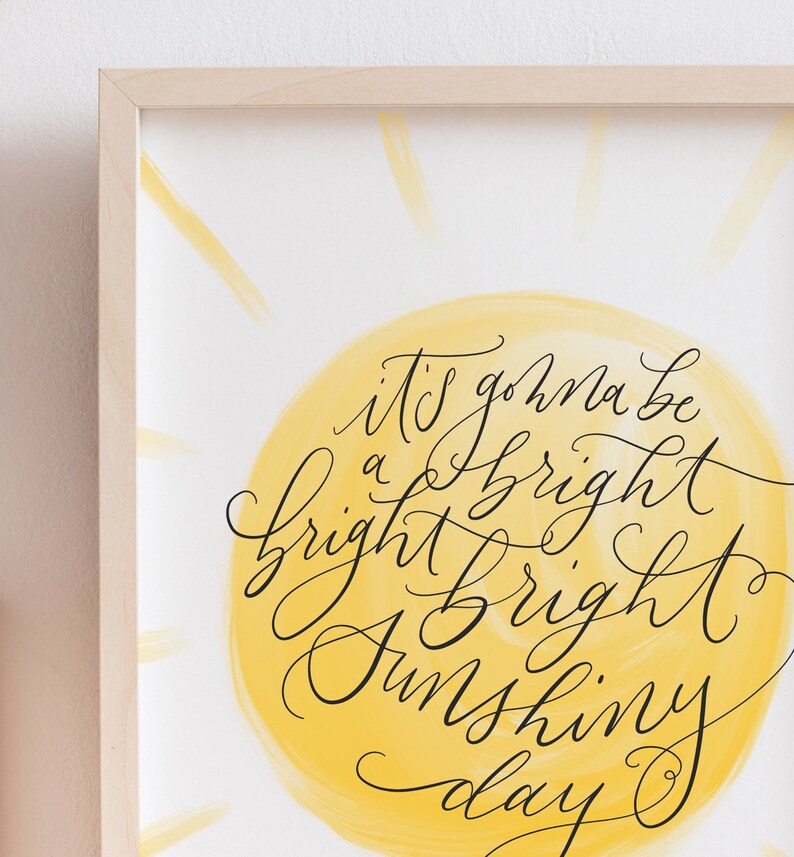 it's gonna be
a bright
bright bright
sunshiny
day